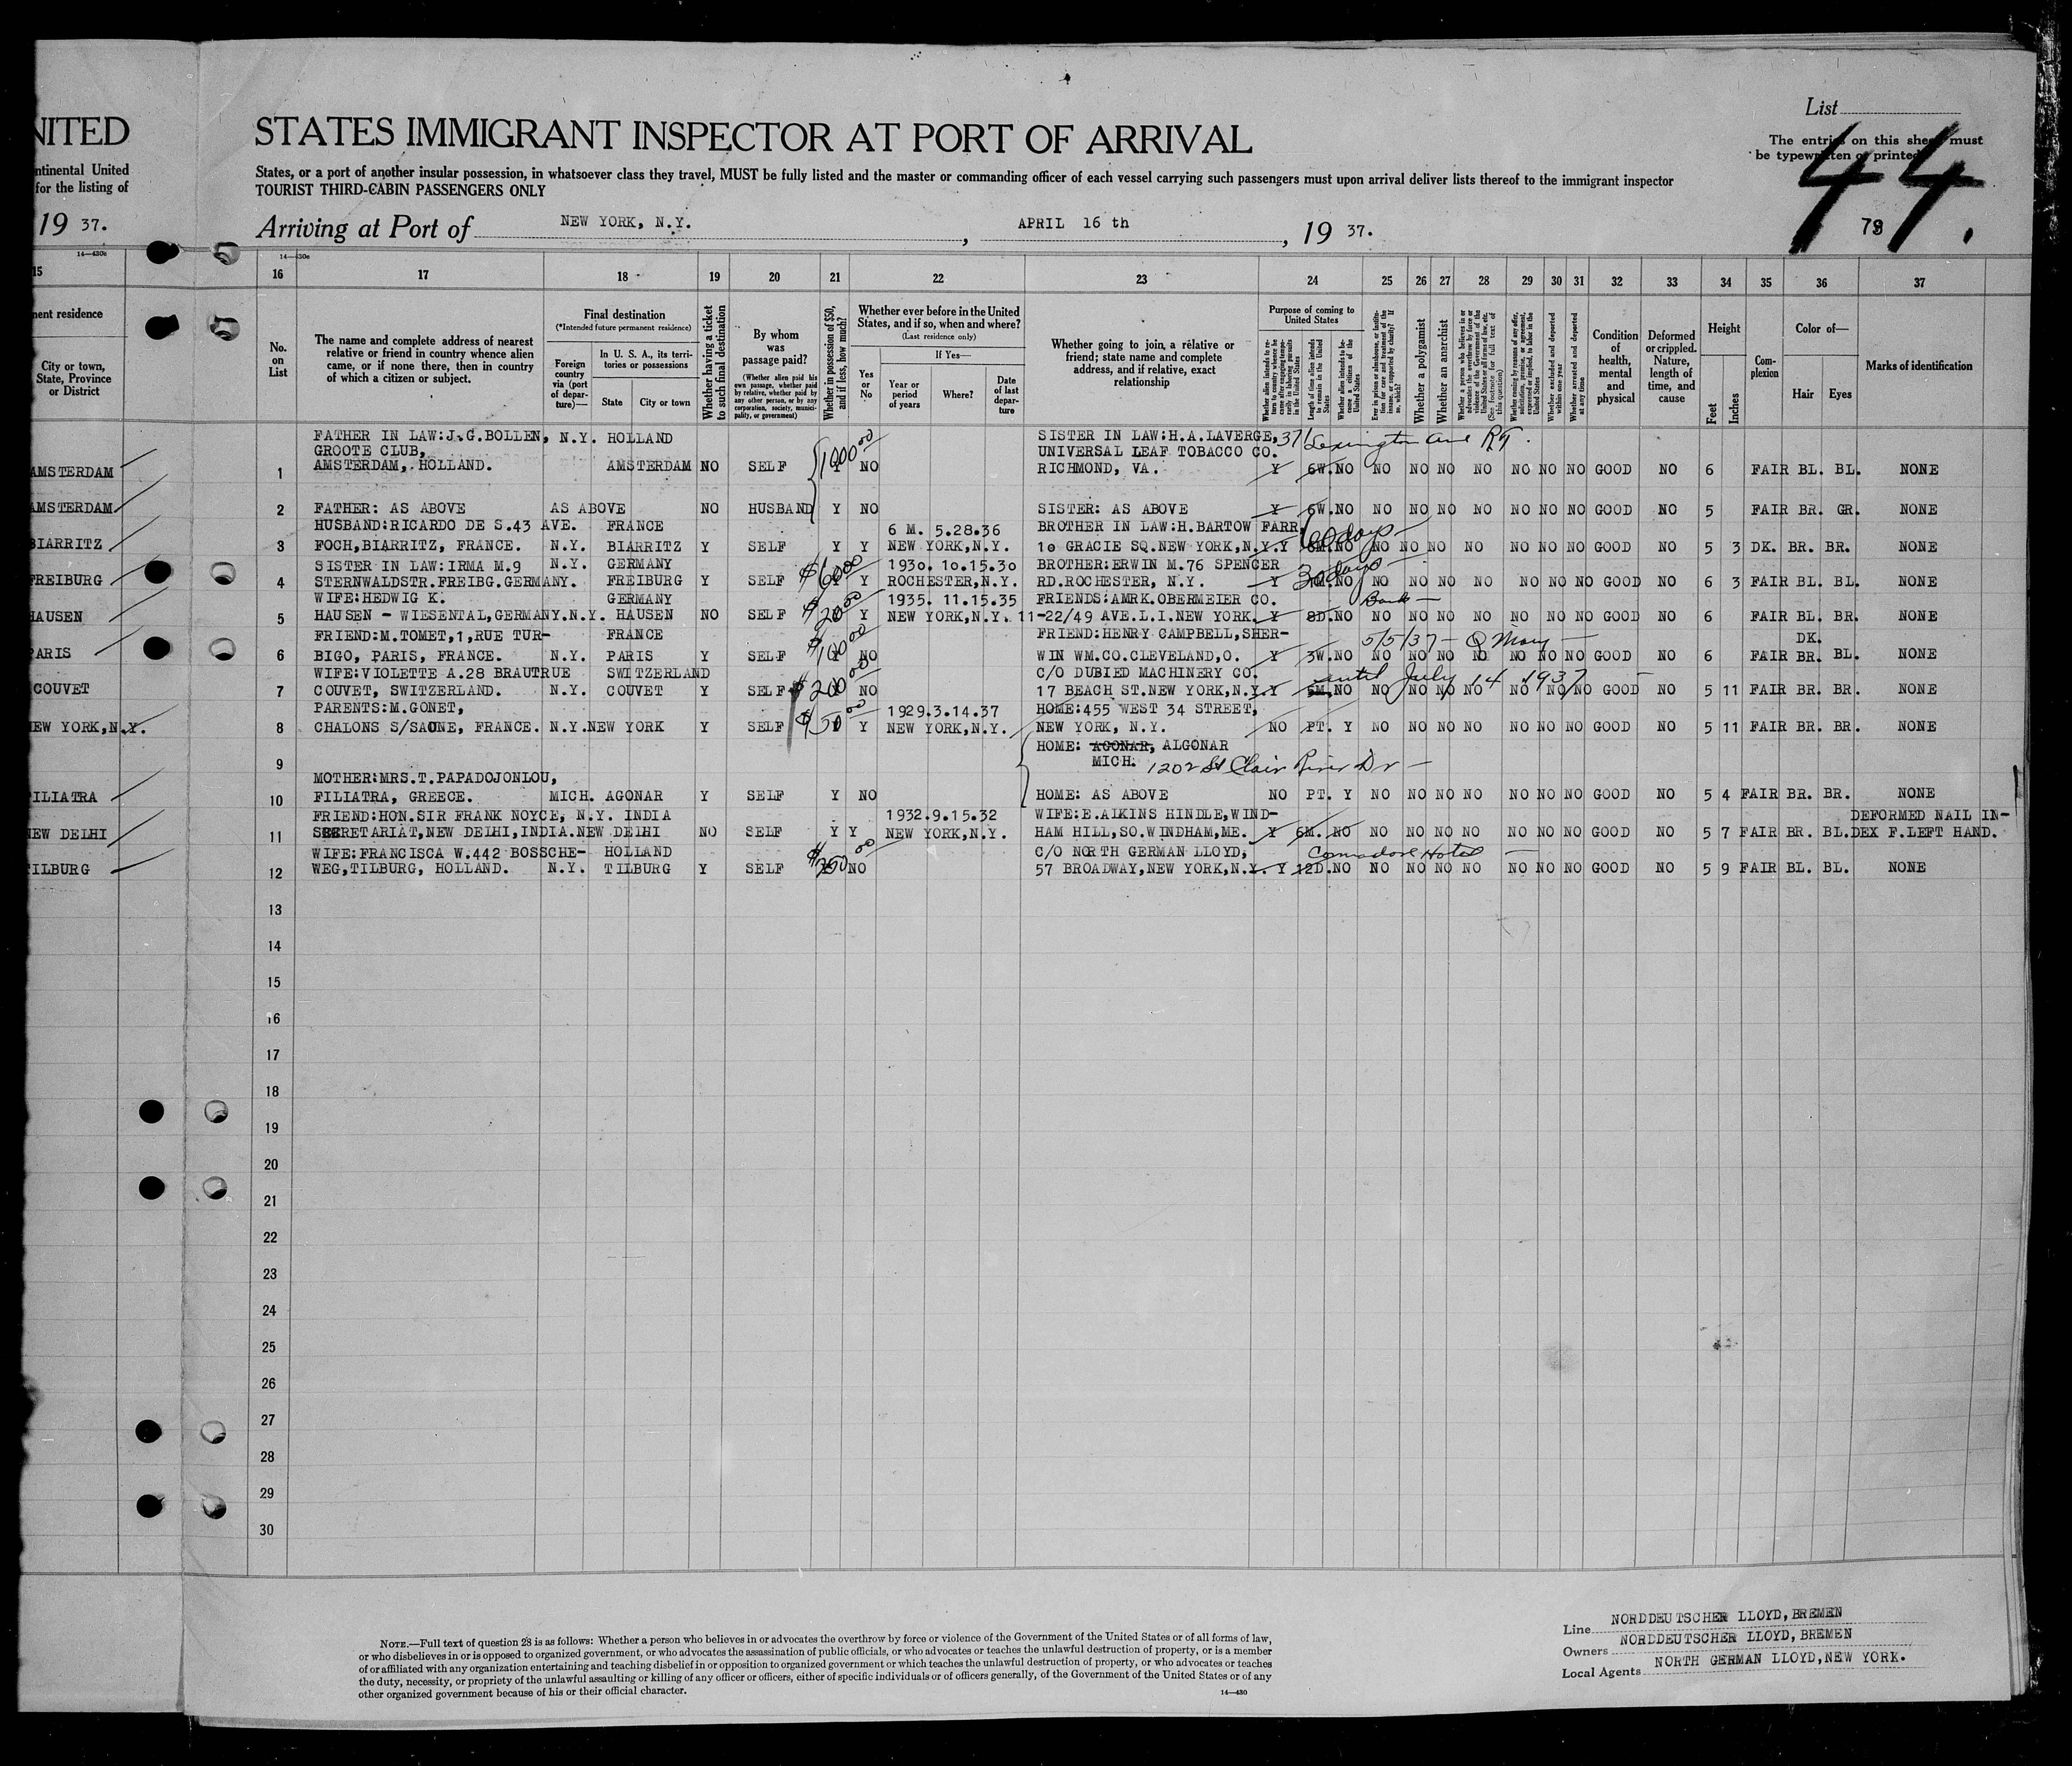 List
NITED STATES IMMIGRANT INSPECTOR AT PORT OF ARRIVAL
The entries on this sheet must
be typewritten or printed
44.
ntinental United States, or a port of another insular possession, in whatsoever class they travel, MUST be fully listed and the master or commanding officer of each vessel carrying such passengers must upon arrival deliver lists thereof to the immigrant inspector
for the listing of TOURIST THIRD-CABIN PASSENGERS ONLY
19 37. Arriving at Port of NEW YORK, N.Y., APRIL 16 th, 19 37.
14—430e 14—430e
15 16 17 18 19 20 21 22 23 24 25 26 27 28 29 30 31 32 33 34 35 36 37
nent residence
City or town, State, Province or District
No. on List
The name and complete address of nearest relative or friend in country whence alien came, or if none there, then in country of which a citizen or subject.
Final destination
(*Intended future permanent residence)
Foreign country via (port of departure)—
In U. S. A., its territories or possessions
State
City or town
Whether having a ticket to such final destination
By whom was passage paid?
(Whether alien paid his own passage, whether paid by relative, whether paid by any other person, or by any corporation, society, municipality, or government)
Whether in possession of $50, and if less, how much?
Whether ever before in the United States, and if so, when and where?
(Last residence only)
Yes or No
If Yes—
Year or period of years
Where?
Date of last departure
Whether going to join a relative or friend; state name and complete address, and if relative, exact relationship
Purpose of coming to United States
Whether alien intends to return to country whence he came after engaging temporarily in laboring pursuits in the United States
Length of time alien intends to remain in the United States
Whether alien intends to become a citizen of the United States
Ever in prison or almshouse, or institution for care and treatment of the insane, or supported by charity? If so, which?
Whether a polygamist
Whether an anarchist
(See footnote for full text of this question)
Whether excluded and deported within one year
Whether arrested and deported at any time
Condition of health, mental and physical
Deformed or crippled. Nature, length of time, and cause
Height
Feet
Inches
Complexion
Color of—
Hair
Eyes
Marks of identification
FATHER IN LAW:J.G.BOLLEN, N.Y. HOLLAND SISTER IN LAW:H.A.LAVERGE, 371 Lexington Ave
GROOTE CLUB, UNIVERSAL LEAF TOBACCO CO.
AMSTERDAM 1 AMSTERDAM, HOLLAND. AMSTERDAM NO SELF 1000.00 NO RICHMOND, VA. Y 6W. NO NO NO NO NO NO NO NO GOOD NO 6 FAIR BL. BL. NONE
AMSTERDAM 2 FATHER: AS ABOVE AS ABOVE NO HUSBAND Y NO SISTER: AS ABOVE Y 6W. NO NO NO NO NO NO NO NO GOOD NO 5 FAIR BR. GR. NONE
HUSBAND:RICARDO DE S.43 AVE. FRANCE 6 M. 5.28.36 BROTHER IN LAW:H.BARTOW FARR, 60 days
BIARRITZ 3 FOCH,BIARRITZ, FRANCE. N.Y. BIARRITZ Y SELF Y Y NEW YORK,N.Y. 10 GRACIE SQ.NEW YORK,N.Y. Y NO NO NO NO NO NO NO NO GOOD NO 5 3 DK. BR. BR. NONE
SISTER IN LAW:IRMA M.9 N.Y. GERMANY 1930. 10.15.30 BROTHER:ERWIN M.76 SPENCER 30 days
FREIBURG 4 STERNWALDSTR.FREIBG.GERMANY. FREIBURG Y SELF Y ROCHESTER,N.Y. RD.ROCHESTER, N.Y. Y NO NO NO NO NO NO NO NO GOOD NO 6 3 FAIR BL. BL. NONE
WIFE:HEDWIG K. GERMANY 1935. 11.15.35 FRIENDS:AMRK.OBERMEIER CO.
HAUSEN 5 HAUSEN - WIESENTAL,GERMANY.N.Y. HAUSEN NO SELF Y NEW YORK,N.Y. 11-22/49 AVE.L.I.NEW YORK. Y 8D. NO NO NO NO NO NO NO NO GOOD NO 6 FAIR BL. BR. NONE
FRIEND:M.TOMET,1,RUE TUR- FRANCE $100.00 FRIEND:HENRY CAMPBELL,SHER- 5/5/37 - Q Mary DK.
PARIS 6 BIGO, PARIS, FRANCE. N.Y. PARIS Y SELF NO WIN WM.CO.CLEVELAND,O. Y 3W. NO NO NO NO NO NO NO NO GOOD NO 6 FAIR BR. BL. NONE
WIFE:VIOLETTE A.28 BRAUTRUE SWITZERLAND C/O DUBIED MACHINERY CO. until July 14 1937
COUVET 7 COUVET, SWITZERLAND. N.Y. COUVET Y SELF $200.00 NO 17 BEACH ST.NEW YORK,N.Y. Y NO NO NO NO NO NO NO NO GOOD NO 5 11 FAIR BR. BR. NONE
PARENTS:M.GONET, 1929.3.14.37 HOME:455 WEST 34 STREET,
NEW YORK,N.Y. 8 CHALONS S/SAONE, FRANCE. N.Y. NEW YORK Y SELF $50.00 Y NEW YORK,N.Y. NEW YORK, N.Y. NO PT. Y NO NO NO NO NO NO NO GOOD NO 5 11 FAIR BR. BR. NONE
9 HOME: AGONAR, ALGONAR
MICH. 1202 St Clair River Dr
MOTHER:MRS.T.PAPADOJONLOU,
FILIATRA 10 FILIATRA, GREECE. MICH. AGONAR Y SELF Y NO HOME: AS ABOVE NO PT. Y NO NO NO NO NO NO NO GOOD NO 5 4 FAIR BR. BR. NONE
FRIEND:HON.SIR FRANK NOYCE, N.Y. INDIA 1932.9.15.32 WIFE:E.AIKINS HINDLE,WIND- DEFORMED NAIL IN-
NEW DELHI 11 SECRETARIAT,NEW DELHI,INDIA.NEW DELHI NO SELF Y Y NEW YORK,N.Y. HAM HILL,SO.WINDHAM,ME. Y 6M. NO NO NO NO NO NO NO NO GOOD NO 5 7 FAIR BR. BL. DEX F.LEFT HAND.
WIFE:FRANCISCA W.442 BOSSCHE- HOLLAND C/O NORTH GERMAN LLOYD, Commodore Hotel
TILBURG 12 WEG,TILBURG, HOLLAND. N.Y. TILBURG Y SELF NO 57 BROADWAY,NEW YORK,N.Y. Y 12D. NO NO NO NO NO NO NO NO GOOD NO 5 9 FAIR BL. BL. NONE
13
14
15
16
17
18
19
20
21
22
23
24
25
26
27
28
29
30
NOTE.—Full text of question 28 is as follows: Whether a person who believes in or advocates the overthrow by force or violence of the Government of the United States or of all forms of law,
or who disbelieves in or is opposed to organized government, or who advocates the assassination of public officials, or who advocates or teaches the unlawful destruction of property, or is a member
of or affiliated with any organization entertaining and teaching disbelief in or opposition to organized government or which teaches the unlawful destruction of property, or who advocates or teaches
the duty, necessity, or propriety of the unlawful assaulting or killing of any officer or officers, either of specific individuals or of officers generally, of the Government of the United States or of any
other organized government because of his or their official character.
14—430
Line NORDDEUTSCHER LLOYD,BREMEN
Owners NORDDEUTSCHER LLOYD,BREMEN
Local Agents NORTH GERMAN LLOYD,NEW YORK.